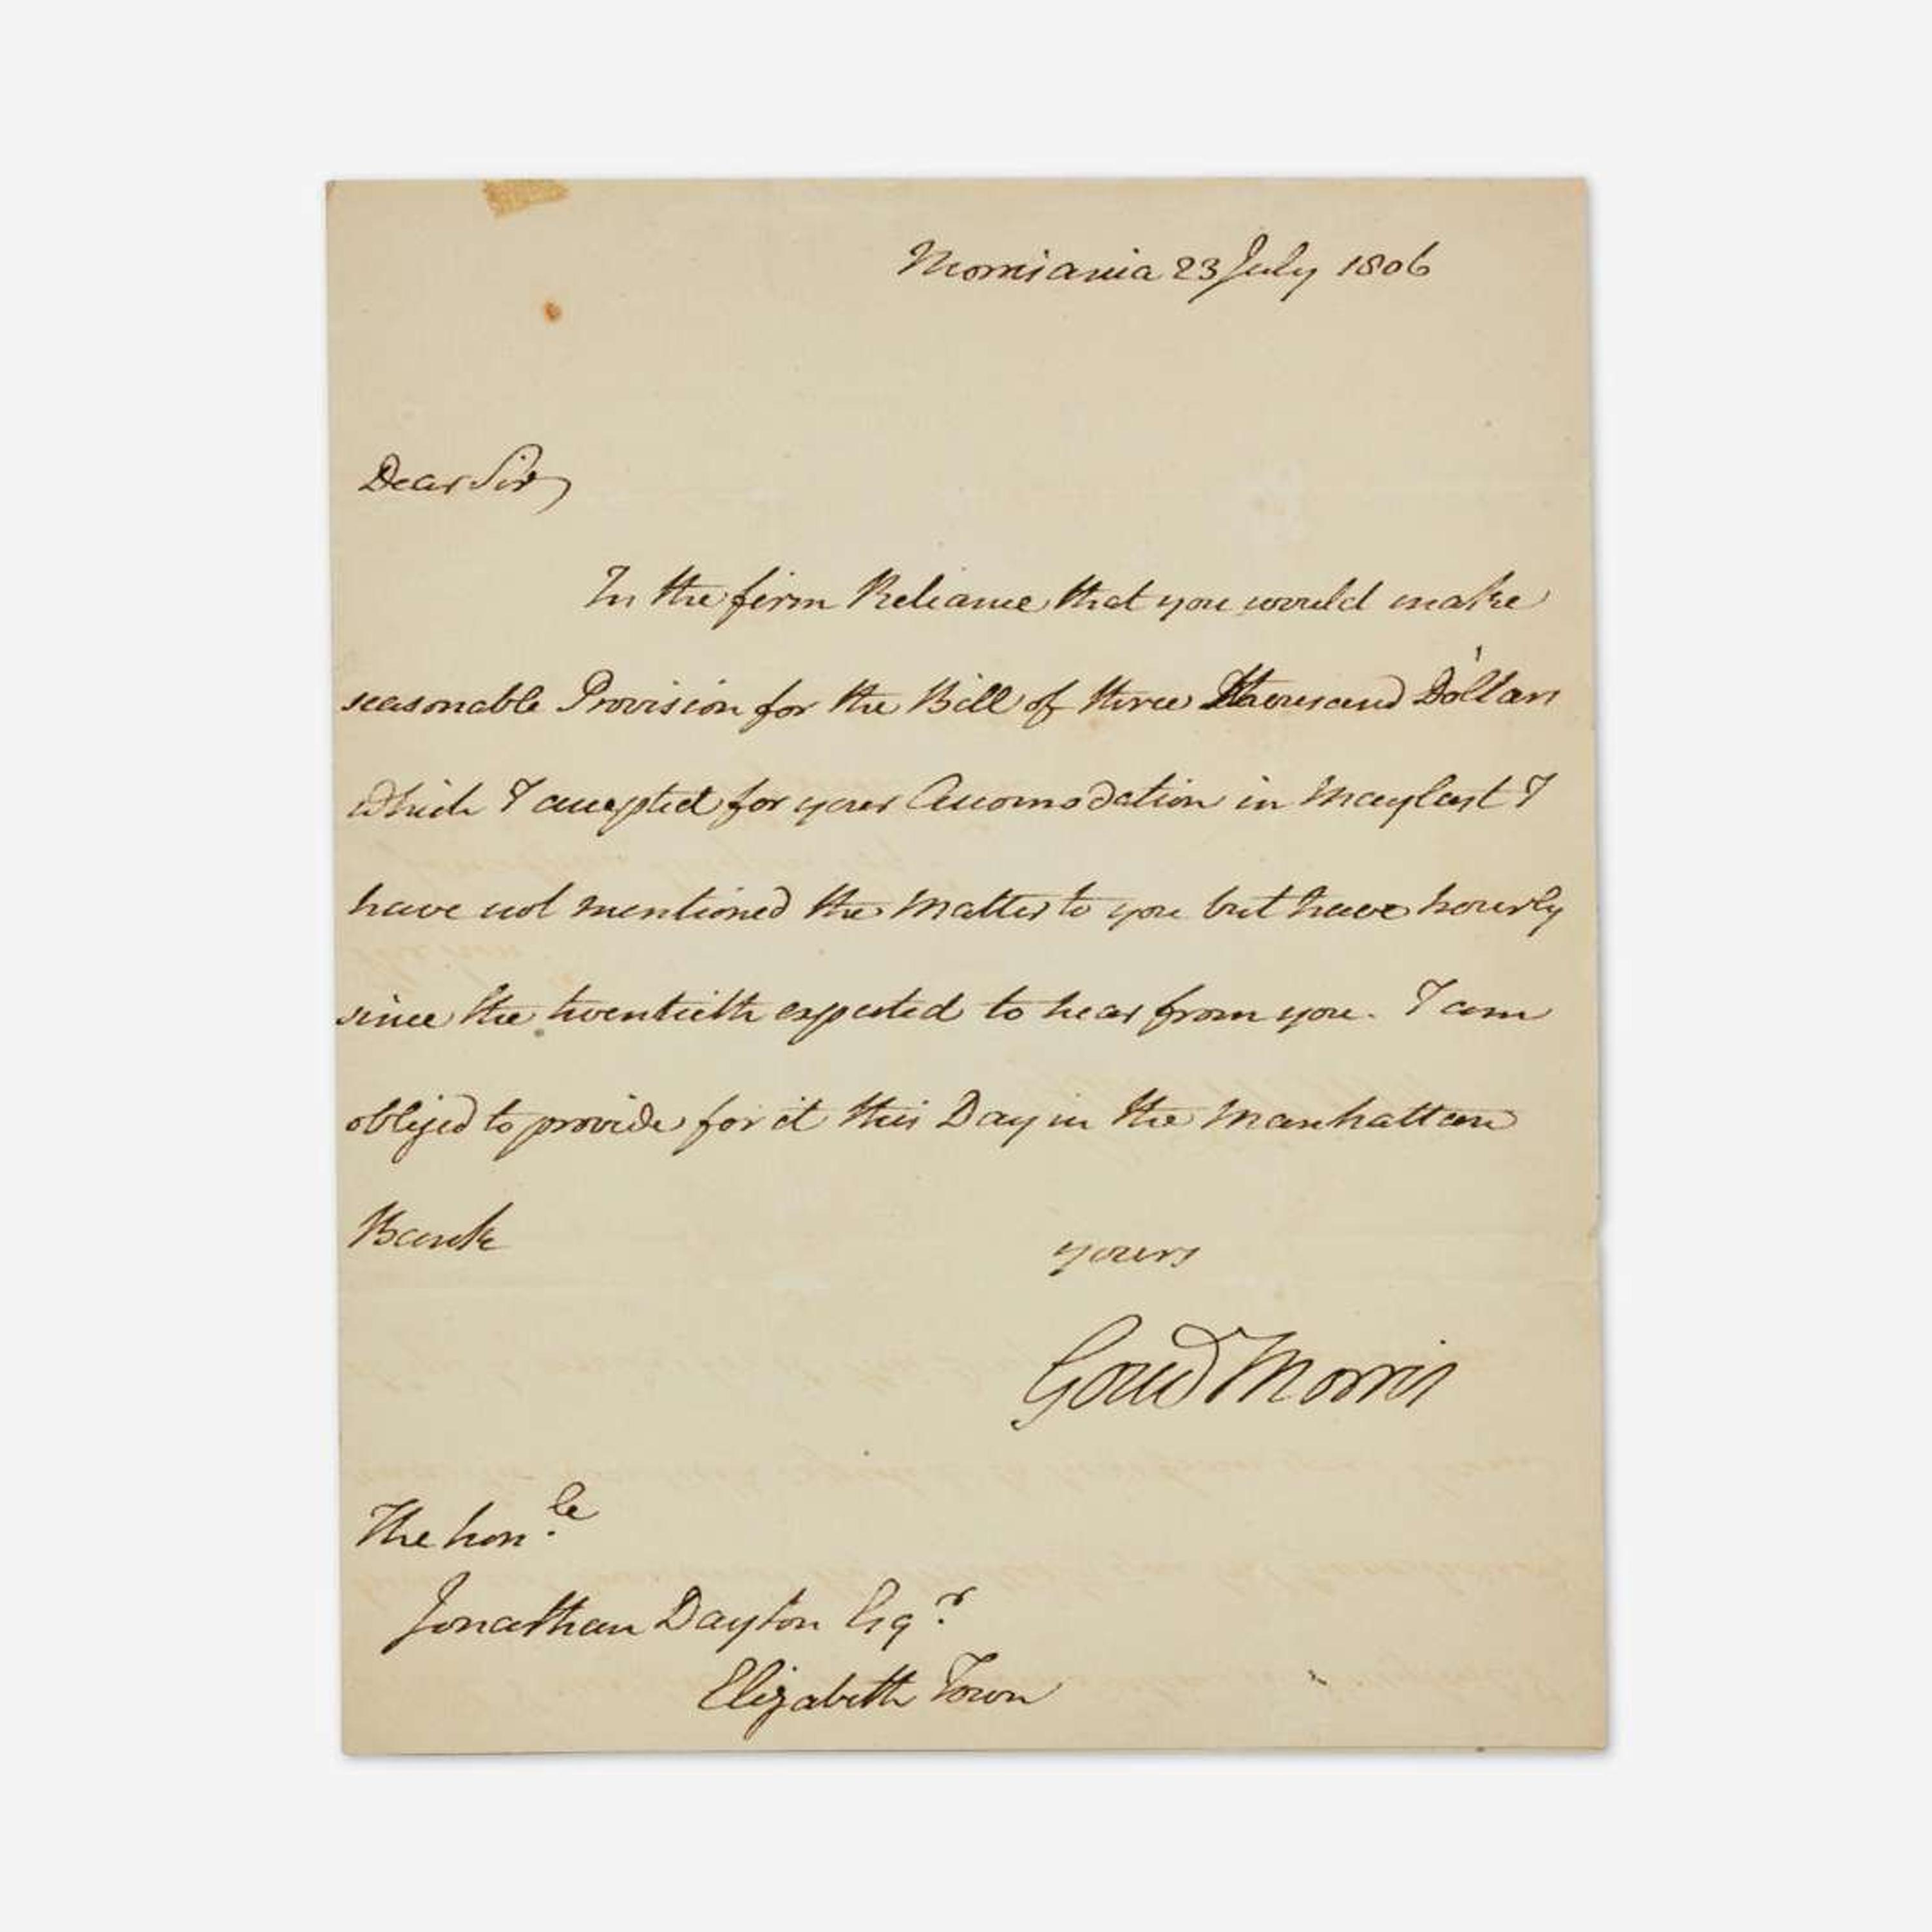 Morrisania 23 July 1806
Dear Sir,
In the firm Reliance that you would make
seasonable Provision for the Bill of three Thousand Dollars
which I accepted for your Accomodation in May last I
have not mentioned the Matter to you but have hourly
since the twentieth expected to hear from you. I am
obliged to provide for it this Day in the Manhattan
Bank
yours
Gouv Morris
The hon.le
Jonathan Dayton Esq.r
Elizabeth Town